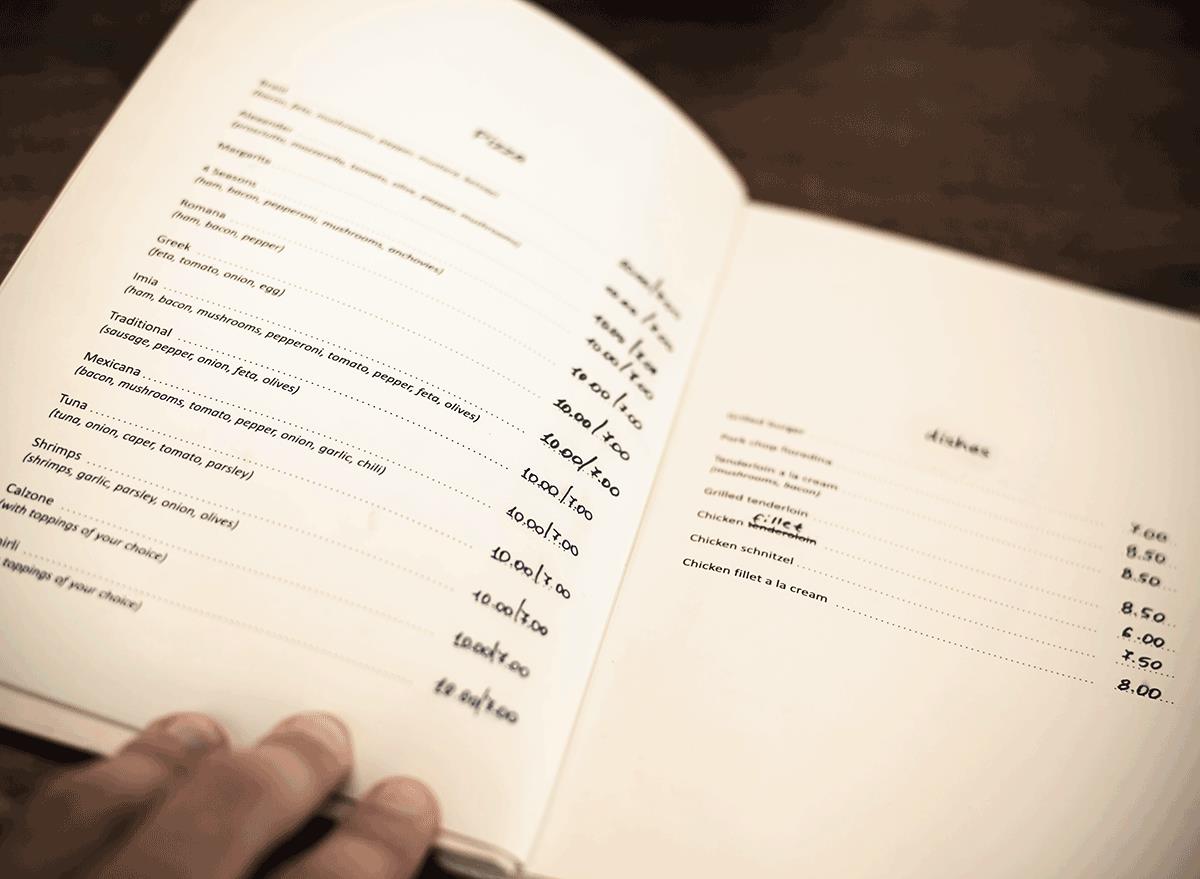 Pizza
(bacon, feta, mushrooms, pepper,
Alexander
(prosciutto, mozzarella, tomato, olive, pepper, mushrooms)
Margarita
4 Seasons
(ham, bacon, pepperoni, mushrooms, anchovies)
Romana
(ham, bacon, pepper)
Greek
(feta, tomato, onion, egg)
10.00/7.00
10.00/7.00
10.00/7.00
10.00/7.00
Imia 10.00/7.00
(ham, bacon, mushrooms, pepperoni, tomato, pepper, feta, olives)
Traditional 10.00/7.00
(sausage, pepper, onion, feta, olives)
Mexicana 10.00/7.00
(bacon, mushrooms, tomato, pepper, onion, garlic, chili)
Tuna 10.00/7.00
(tuna, onion, caper, tomato, parsley)
Shrimps 10.00/7.00
(shrimps, garlic, parsley, onion, olives)
Calzone 10.00/7.00
(with toppings of your choice)
10.00/7.00
toppings of your choice)
dishes
Grilled burger 7.00
Pork chop fioradina 8.50
Tenderloin a la cream 8.50
(mushrooms, bacon)
Grilled tenderloin 8.50
fillet
Chicken tenderloin 6.00
Chicken schnitzel 7.50
Chicken fillet a la cream 8.00